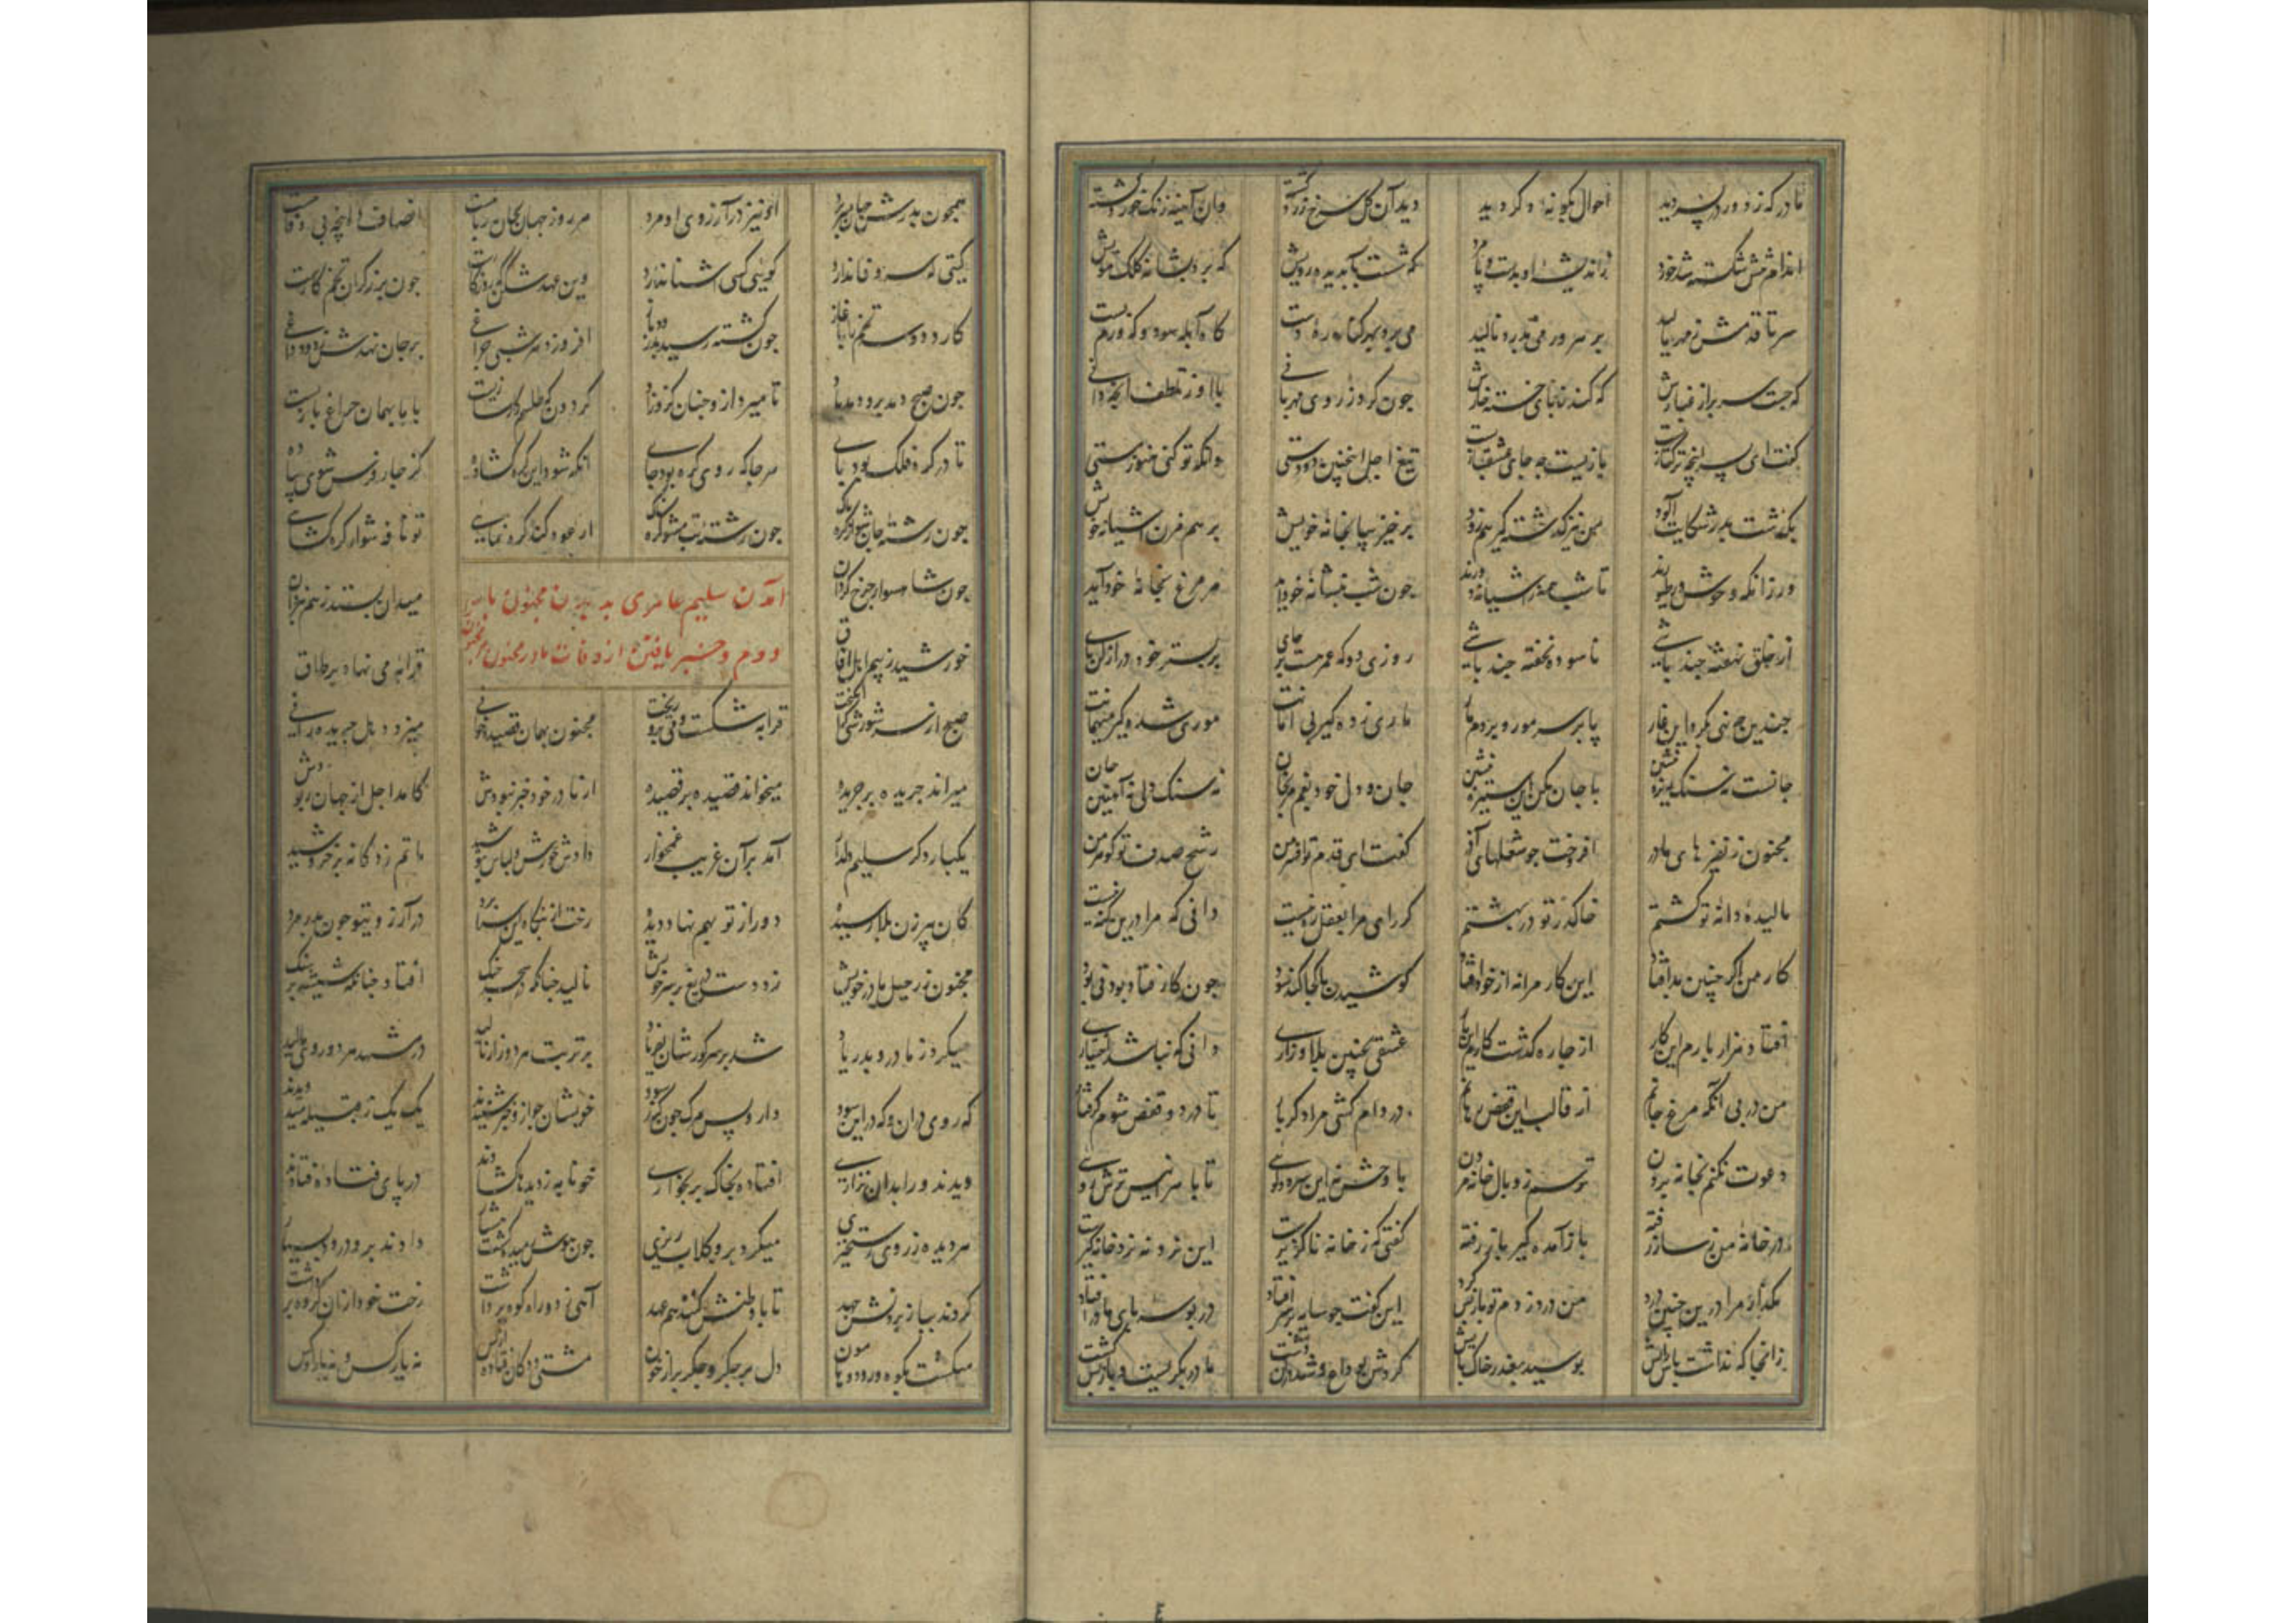 مادر که ز دور در پسر دید احوال بگونهٔ دگر دید دید آن گل سرخ زرد گشته وان آینه زنگ خورد گشته
اندام تنش شکسته شد خرد زاندیشه او بدست و پا مرد گه شست بآب دیده رویش گه کرد بشانه کلک مویش
سر تا قدمش ز مهر مالید بر هر ورمی بدرد نالید می برد بهر کناره دست گاه آبله سود و گه ورم بست
گه جست سر پر از غبارش گه کند ز پای خسته خارش چون کرد ز روی مهربانی با او ز تلطف آنچه دانی
گفت ای پسر اینچه ترکتازیست بازیست چه جای عشقبازیست تیغ اجل اینچنین دو دستی وانگه تو کنی هنوز مستی
بگذشت پدر شکایت آلود من نیز گذشته گیر هم زود برخیز بیا بخانه خویش بر هم مزن آشیانه خویش
ور زانکه وحوش و طیورند تا شب همه زاشیانه دورند چون شب بنشانه خود آید هر مرغ بخانه خود آید
از خلق نهفته چند باشی ناسوده نخفته چند باشی روزی دو که عمر هست بر جای بر بستر خود دراز کن پای
چندین چه نهی بگرد این غار پا بر سر مور و بر دم مار ماری زده گیر بی امانت موری شده گیر میهمانت
جانست نه سنگ ریزه بنشین با جان مکن این ستیزه بنشین جان و دل خود بغم مرنجان نه سنگ دلی نه آهنین جان
مجنون ز نفیرهای مادر افروخت چو شعلهای آذر گفت ای قدم تو افسر من رشح صدف تو گوهر من
مالیده دانه تو گشتم ز تو در بهشتم گر رای مرا بعقل ره نیست دانی که مرا درین گنه نیست
کار من اگر چنین بد افتاد این کار مرا نه از خود افتاد کوشیدن ما کجا کند سود چون کار فتاد بودنی بود
افتاد هزار بارم این کار از چاره گذشت کارم این بار عشقی بچنین بلا و زاری دانی که نباشد اختیاری
من در پی آنکه مرغ جانم از قالب این قفص برهانم در دام کشی مرا دگر بار تا در دو قفص شوم گرفتار
دعوت مکنم بخانه بردن ترسم ز وبال خانه مردن با وحش
در خانه من ز ساز رفته باز آمده گیر باز رفته گفتی که ز خانه ناگزیرست این نرد نه نرد خانه گیرست
بگذار مرا درین چنین درد من درد زدم تو باز پس گرد این گفت چو سایه بر سر افتاد در بوسه پای مادر افتاد
زانجا که نداشت پاس رایش بوسید بعذر خاک پایش کردش بوداع و شد در آن دشت مادر بگریست و باز پس گشت
همچون پدرش جهان بسر برد او نیز در آرزوی او مرد هر روز جهان جهان ربایست انصاف
گیتی که سر وفا ندارد گویی کس آشنا ندارد وین عهد شکن که روزگارست چون برزگران تخم کارست
کارد دو سه تخم را باغاز چون کشته رسید بدرود باز افروزد هر شبی چراغی بر جان نهدش ز دود داغی
چون صبح دمد برو دمد باد تا میرد ازو چنان کزو زاد گردون که طلسم کارسازیست با ما بهمان چراغ بازیست
تا در گره فلک بود پای هر جا که روی گره بود جای آنگه شود این گره گشاده کز چار فرس شوی پیاده
چون رشته جان چون رشته تب مشو گره ار عود کند گره نمایی تو نافه شو از گره گشایی
چون شاهسوار چرخ گردان میدان بستد ز هم نبردان
آمدن سلیم عامری به دیدن مجنون بار
دوم و خبر یافتن از وفات مادر مجنون
خورشید ز بیم اهل آفاق قرابه می نهاد بر طاق
صبح از سر شورشی که انگیخت قرابه شکست و می برو ریخت مجنون بهمان قصیده خوانی میزد دهل جریده رانی
میراند جریده بر جریده میخواند قصیده بر قصیده از مادر خود خبر نبودش کامد اجل از جهان ربودش
یکبار دگر سلیم دلدار آمد بر آن غریب غمخوار دادش خورش و لباس پوشید ماتم زدگانه برخروشید
کان پیر زن بلا رسیده دور از تو بهم نهاد دیده رخت از بنگاه این سرا برد در آرزوی تو چون پدر مرد
مجنون ز رحیل مادر خویش زد دست دریغ بر سر خویش نالید چنانکه در سحر چنگ افتاد چنانکه شیشه بر سنگ
میکرد ز مادر و پدر یاد شد بر سر گورشان بفریاد بر تربت هر دو زار نالید در مشهد هر دو روی مالید
گه روی در ان و گه در این سود دارو پس مرگ چون کند سود خویشان چو ازو خبر شنیدند یک یک ز قبیله میدویدند
دیدند ورا بدان نزاری افتاده بخاک بر بخواری خونابه ز دیدها گشادند در پای فتاده اوفتادند
هر دیده ز روی رستخیزی میکرد برو گلاب ریزی چون هوش رمیده گشت هشیار دادند برو درود بسیار
کردند بباز بردنش جهد تا با وطنش کنند هم عهد آهی زد و راه کوه برداشت رخت خود از ان گروه برداشت
میگشت بکوه و رود و هامون دل پر جگر و جگر پر از خون مشتی ددگان فتاده از پس نه یار کس و نه یار او کس